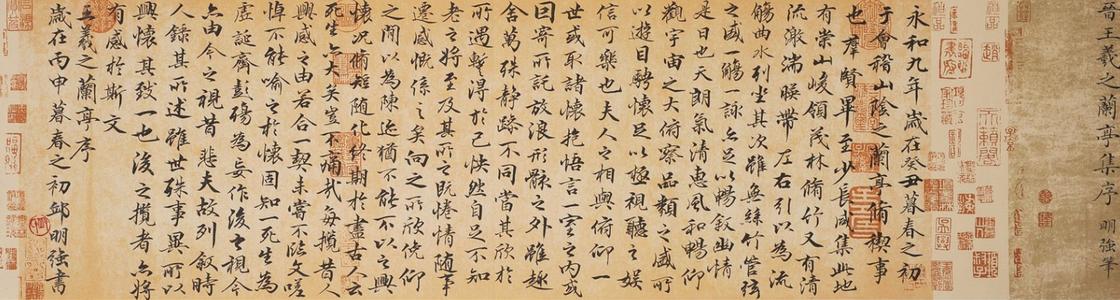 晋王羲之蘭亭集序 明強筆
永和九年歲在癸丑暮春之初
于會稽山陰之蘭亭脩禊事
也羣賢畢至少長咸集此地
有崇山峻領茂林脩竹又有清
流激湍暎帶左右引以為流
觴曲水列坐其次雖無絲竹管弦
之盛一觴一詠亦足以暢敘幽情
是日也天朗氣清惠風和暢仰
觀宇宙之大俯察品類之盛所
以遊目騁懷足以極視聽之娛
信可樂也夫人之相與俯仰一
世或取諸懷抱悟言一室之內或
因寄所託放浪形骸之外雖趣
舍萬殊静躁不同當其欣於
所遇暫得於己怏然自足不知
老之將至及其所之既惓情随事
遷感慨係之矣向之所欣俛仰
之間以為陳迹猶不能不以之興
懷况脩短随化終期於盡古人云
死生亦大矣豈不痛哉每攬昔人
興感之由若合一契未嘗不臨文嗟
悼不能喻之於懷固知一死生為
虛誕齊彭殤為妄作後之視今
亦由今之視昔悲夫故列敘時
人錄其所述雖世殊事異所以
興懷其致一也後之攬者亦將
有感於斯文
王羲之蘭亭序
歲在丙申暮春之初邱明強書